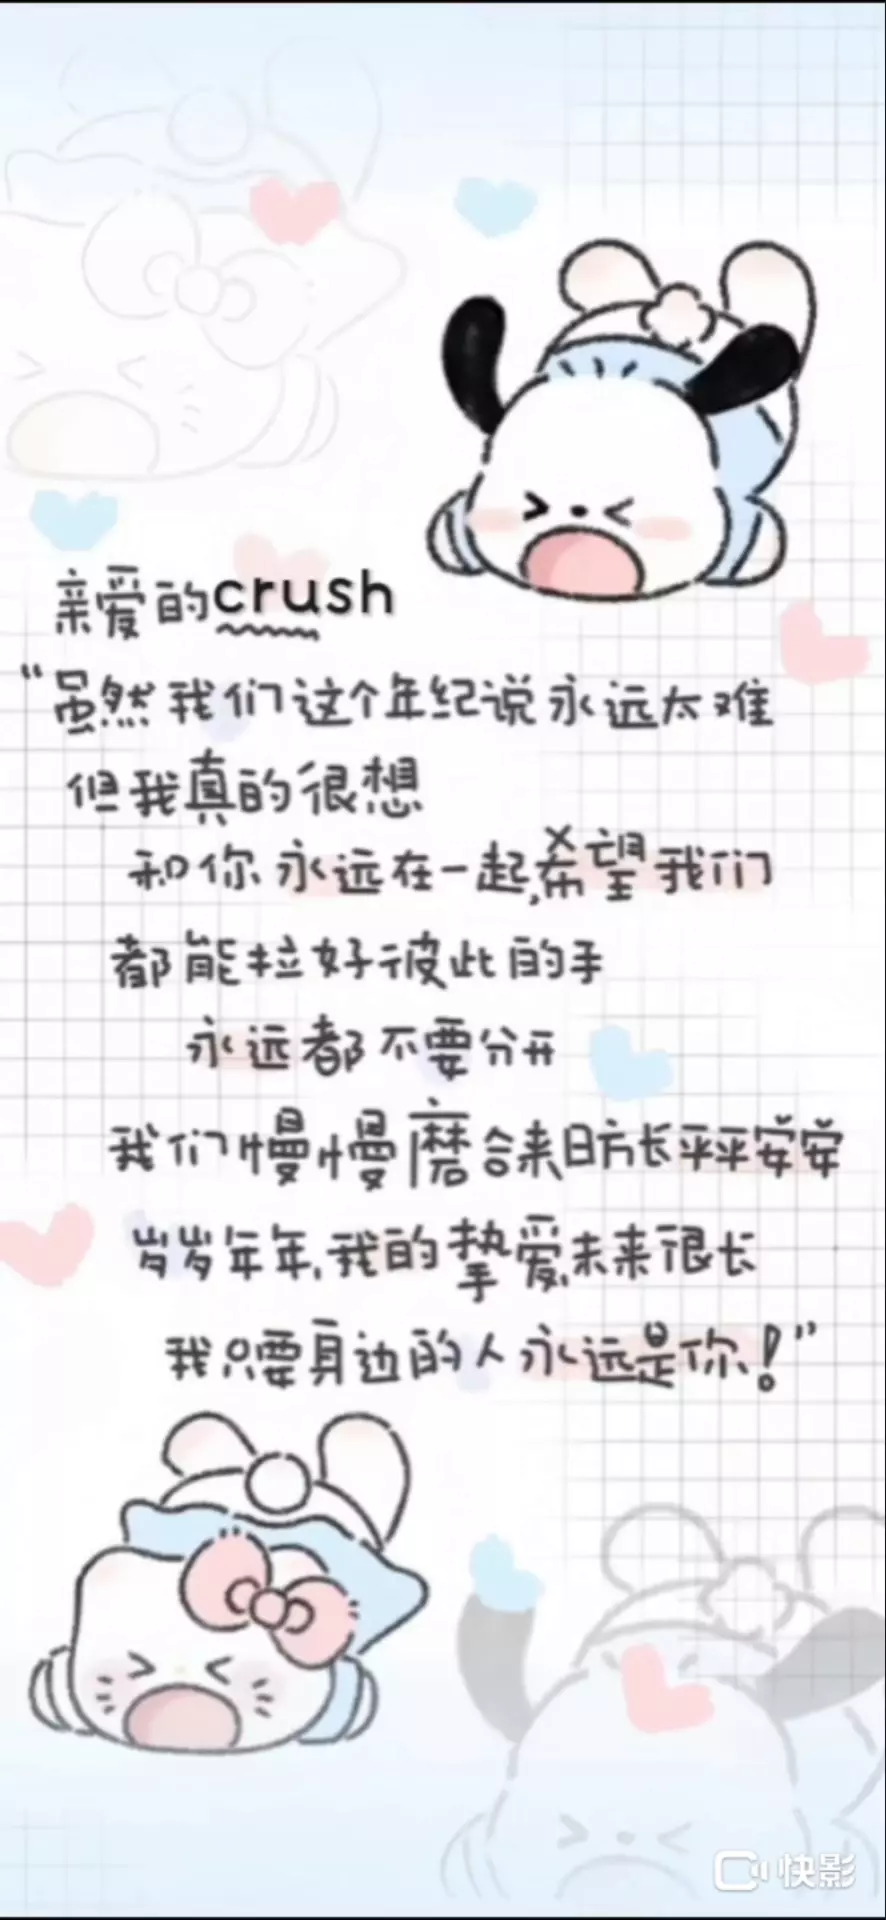 亲爱的crush
“虽然我们这个年纪说永远太难
但我真的很想
和你永远在一起,希望我们
都能拉好彼此的手
永远都不要分开
我们慢慢磨合来日方长平平安安
岁岁年年,我的挚爱,未来很长
我只要身边的人永远是你!”
快影